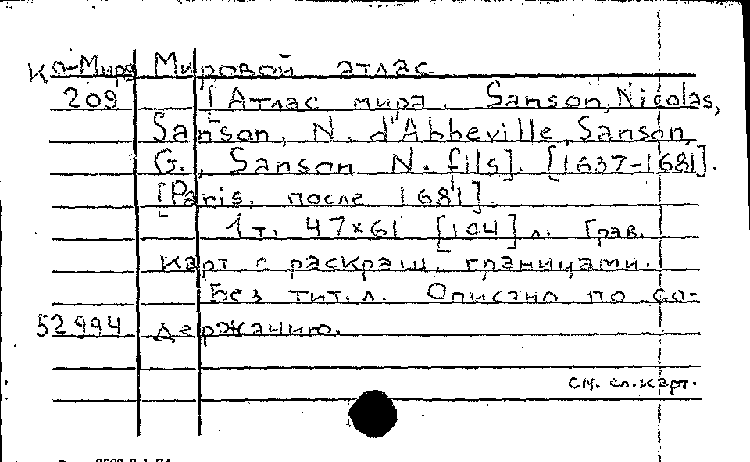 Ко-Мира Мировой атлас
209 [Атлас мира. Sanson, Nicolas,
Sanson, N. d'Abbeville, Sanson,
G., Sanson N. fils]. [1637-1681].
[Paris, после 1681].
1 т. 47×61 [104] л. Грав.
карт с раскраш. границами.
Без тит. л. Описано по со-
52994 держанию.
см. сл. карт.